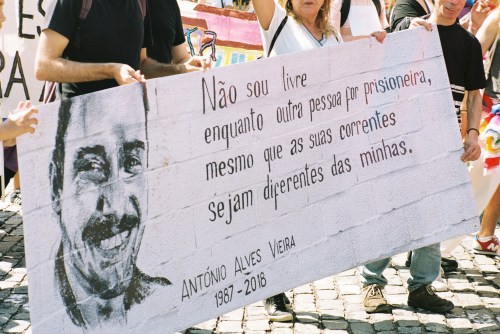 Não sou livre
enquanto outra pessoa for prisioneira,
mesmo que as suas correntes
sejam diferentes das minhas.
António Alves Vieira
1987-2018